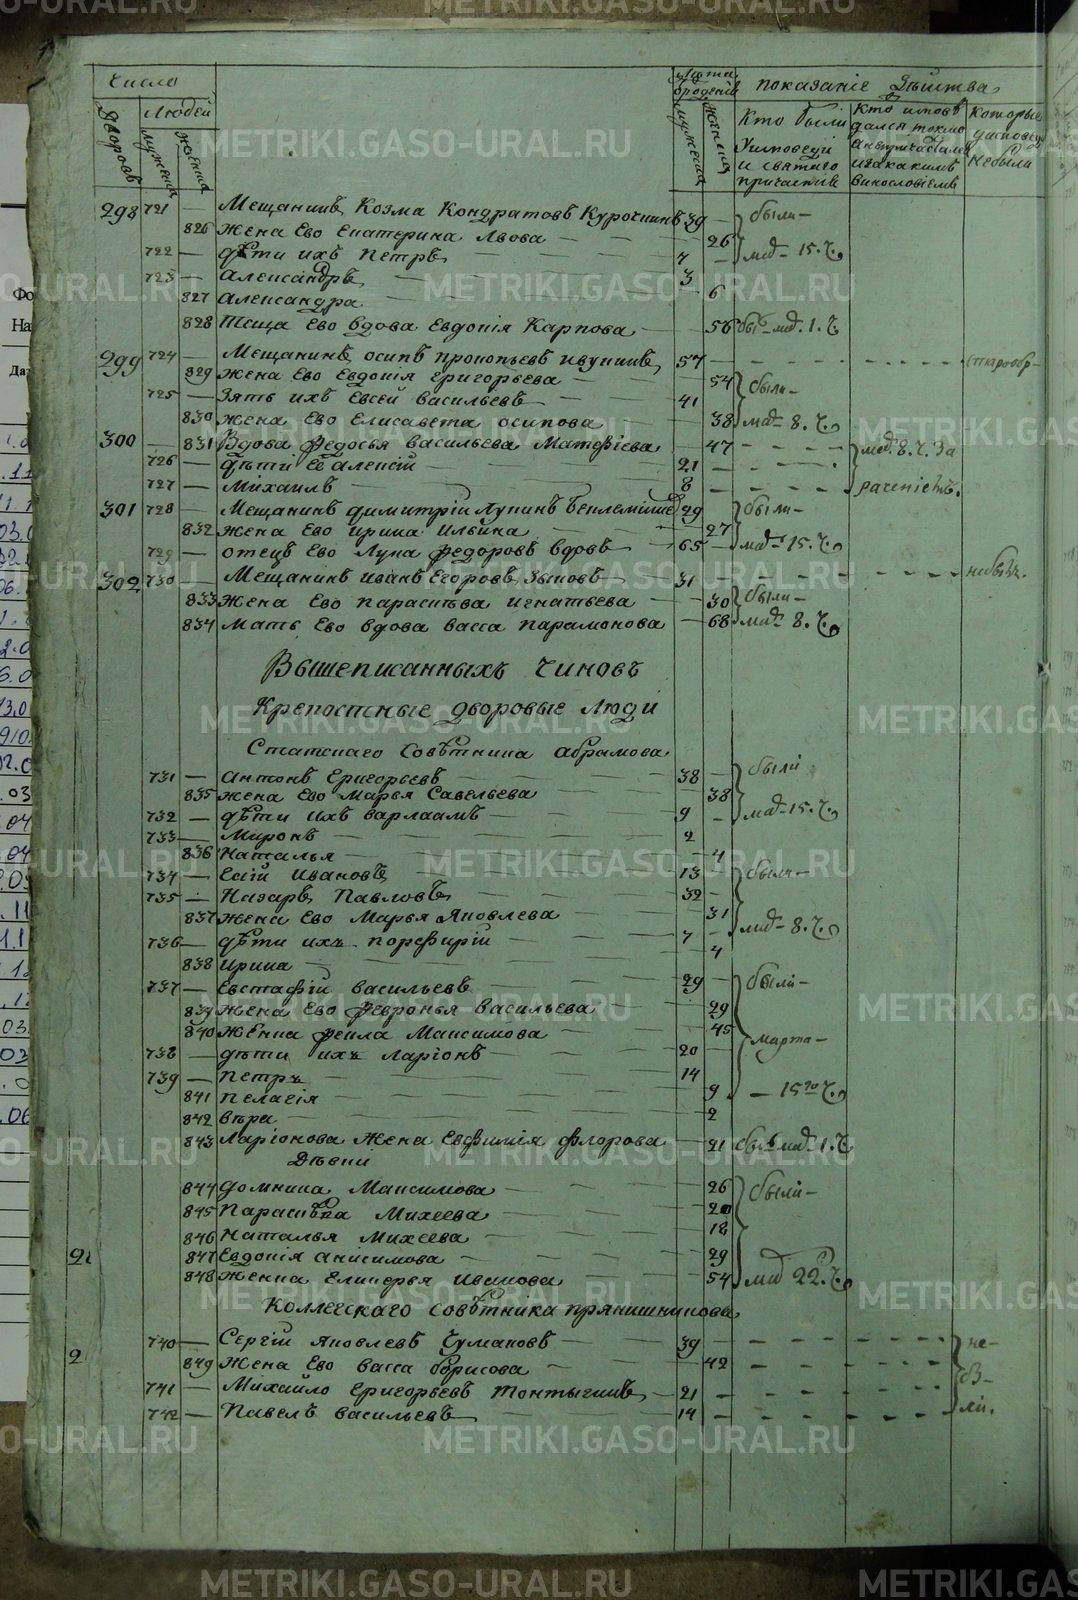 Число
Дворовъ
Людей
мужеска
женска
Лѣта рожденія
мужеска
женска
показаніе Дѣйства
Кто были
исповеди
и святаго
причастия
Кто исповѣ
дался токмо
а непричащался
и за какимъ
винословiемъ
которые
у исповеди
небыли
298 721 — Мещанинъ Козма Кондратовъ Курочкинъ 39 — были —
826 жена Ево Екатерина Львова — — 26
722 — дѣти ихъ Петръ — 7 — мар. 15. ч.
723 — Александръ — 3
827 Александра — 6
828 Теща Ево вдова Евдокія Карпова — 56 бы. мар. 1. ч.
299 724 — Мещанинъ осипъ прокопьевъ 57 — — — старообр-
829 жена Ево Евдокія григорьева — 54 были —
725 — Зять ихъ Евсей Васильевъ — 41
830 жена Ево Елисавета осипова — 38 мар. 8. ч.
300 — 831 Вдова Федосья васильева Матфіева — 47 — — — мар. 8. ч. За
726 — дѣти Её алексій — 21 — — —
727 — Михаилъ — 8 — — —
301 728 — Мещанинъ димитрій Лукинъ 29 были —
832 жена Ево ирина Ильина — 27
729 — отецъ Ево Лука федоровъ вдовъ — 65 — мар. 15. ч.
302 730 — Мещанинъ иванъ Егоровъ Зыковъ — 31 — — — небылъ.
833 жена Ево параскѣва игнатьева — 30 были —
834 мать Ево вдова васса парамонова — 68 мар. 8. ч.
Вышеписанныхъ чиновъ
Крепостные дворовые люди
Статскаго Совѣтника абрамова
731 — антонъ григорьевъ — 38 — были
835 жена Ево Марья Савельева — 38
732 — дѣти ихъ варлаамъ — 9 — мар. 15. ч.
733 — Миронъ — 2
836 Наталья — 4
734 — Ивановъ — 13 — были —
735 — Назаръ Павловъ — 32 —
837 жена Ево Марья Яковлева — 31 мар. 8. ч.
736 — дѣти ихъ порфирій — 7 —
838 ирина — 4
737 — Евстафій васильевъ — 29 — были —
839 жена Ево февронья васильева — 29
840 женка фекла Максимова — 45 марта —
738 — дѣти ихъ Ларіонъ — 20 —
739 — петръ — 14
841 пелагія — 9 — 15го ч.
842 вѣра — 2
843 Ларіонова жена Евфимія флорова — 21 бы. мар. 1. ч.
Дѣвки
844 домника Максимова — 26 были —
845 параскѣва Михеева — 20
846 Наталья Михеева — 18
2 847 Евдокія анисимова — 29
848 женка Гликерья Иванова — 54 мар. 22. ч.
Коллегскаго совѣтника прянишникова
740 — Сергій яковлевъ Чумаковъ — 39 — — — не-
2 849 жена Ево васса борисова — 42 — — —
741 — Михайло григорьевъ — 21 — — —
742 — Павелъ васильевъ — 14 — — — ли.
METRIKI.GASO-URAL.RU